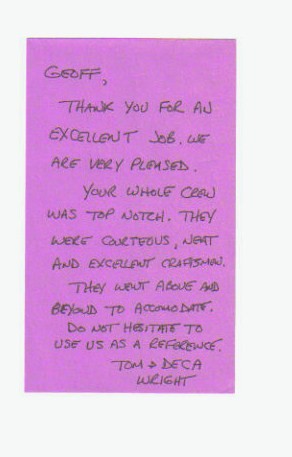 GEOFF,
THANK YOU FOR AN
EXCELLENT JOB. WE
ARE VERY PLEASED.
YOUR WHOLE CREW
WAS TOP NOTCH. THEY
WERE COURTEOUS, NEAT
AND EXCELLENT CRAFTSMEN.
THEY WENT ABOVE AND
BEYOND TO ACCOMODATE.
DO NOT HESITATE TO
USE US AS A REFERENCE.
TOM & DECA
WRIGHT